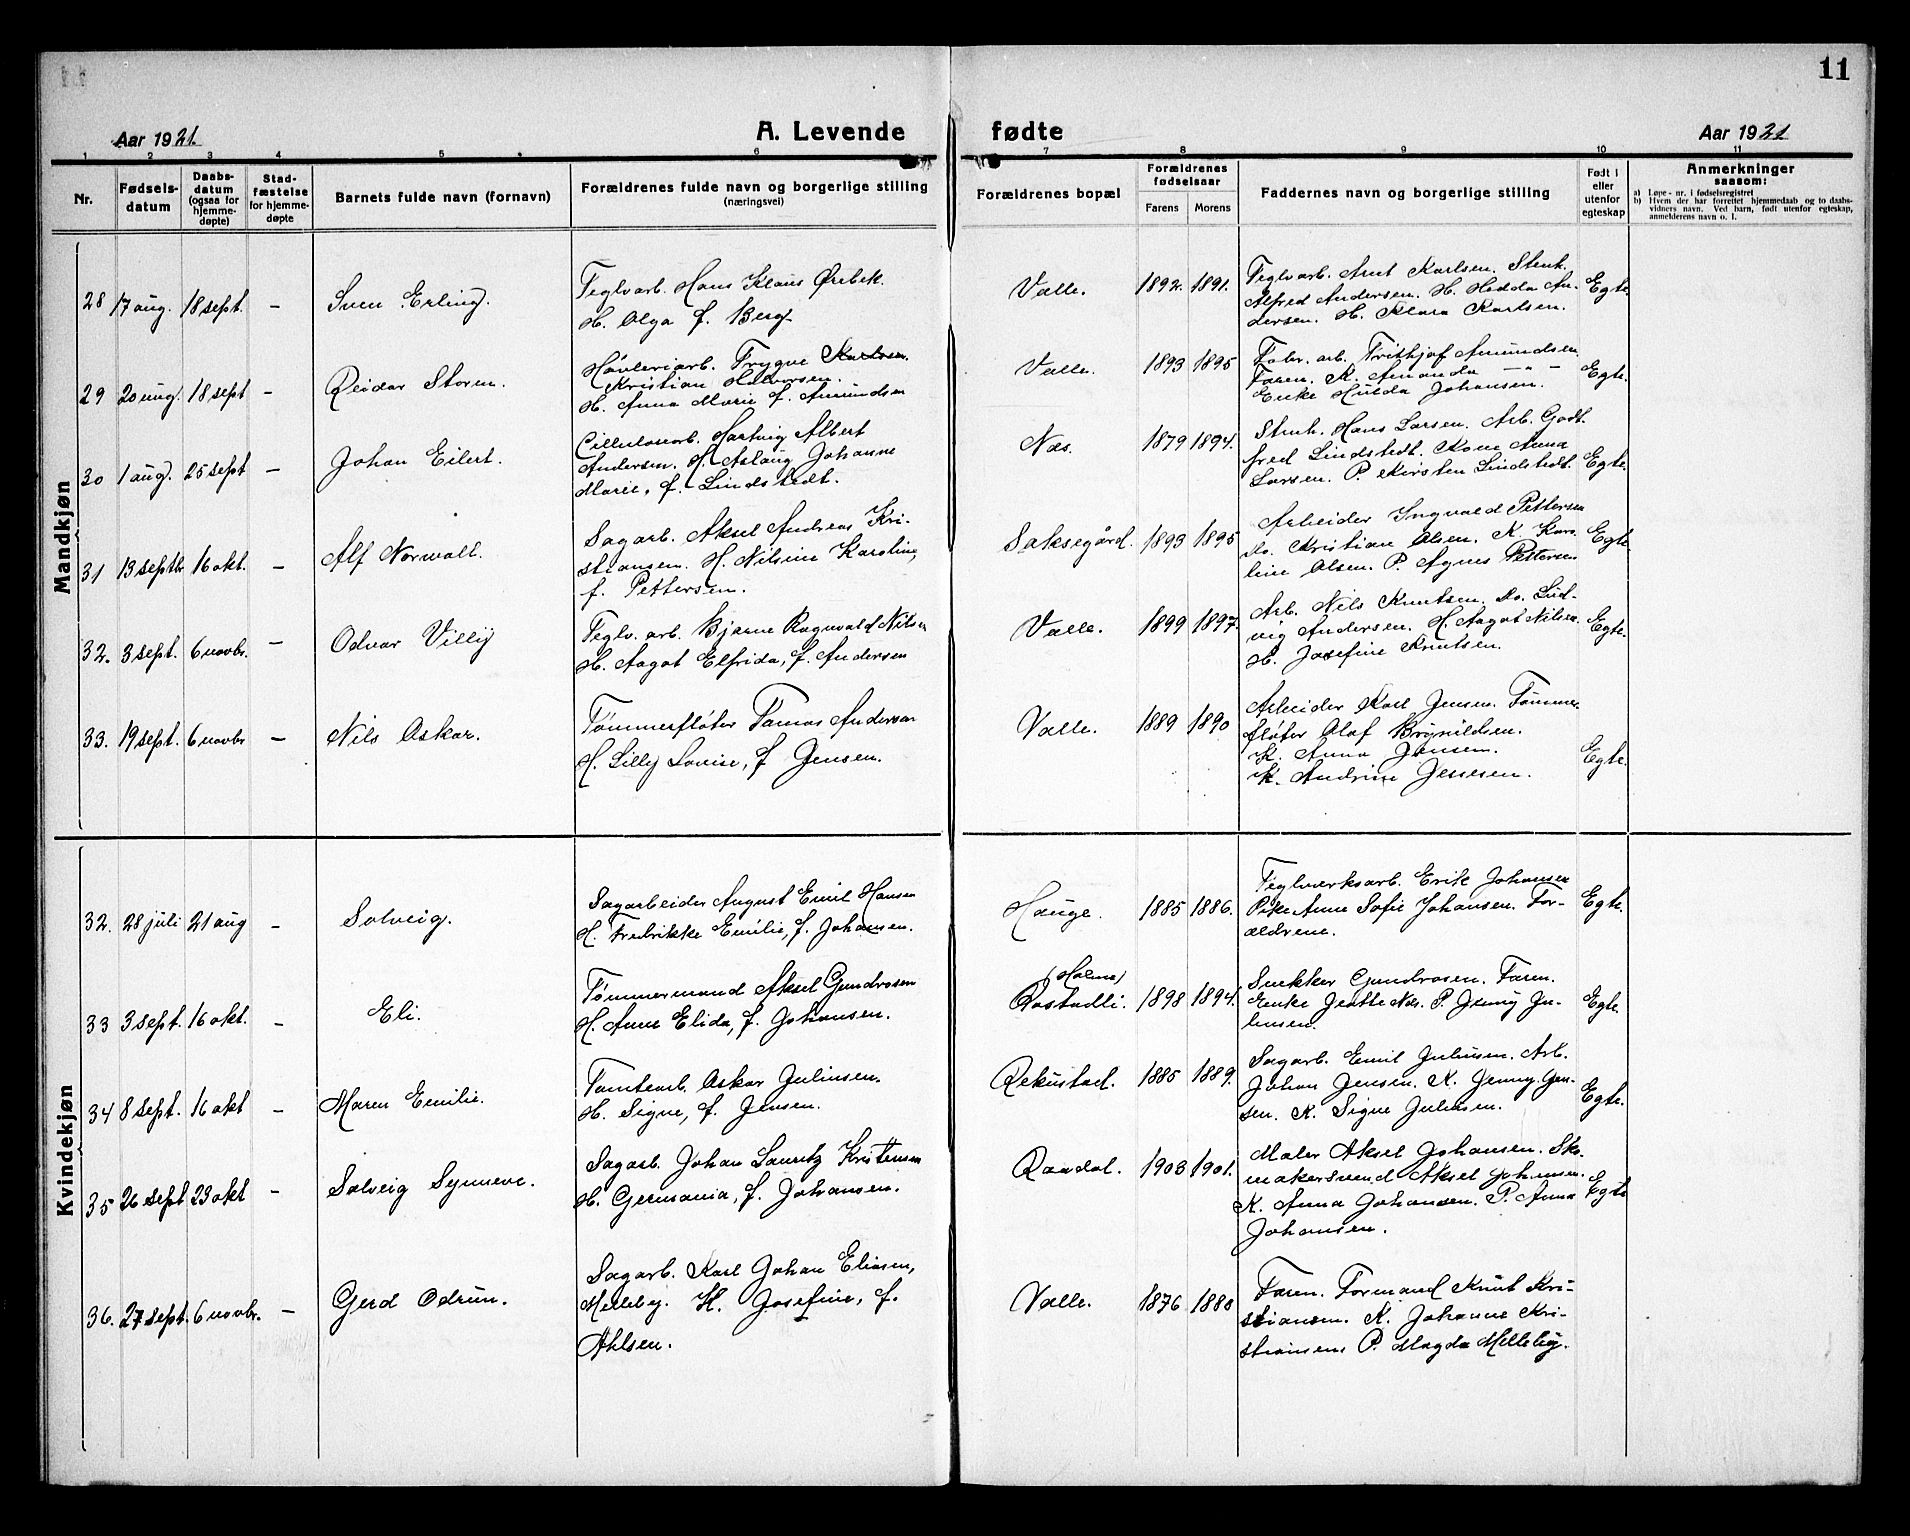 11
Aar 1921.
A. Levende fødte
Aar 1921
1 2 3 4 5 6 7 8 9 10 11
Nr.
Fødsels-
datum
Daabs-
datum
(ogsaa for
hjemme-
døpte)
Stad-
fæstelse
for hjemme-
døpte
Barnets fulde navn (fornavn)
Forældrenes fulde navn og borgerlige stilling
(næringsvei)
Forældrenes bopæl
Forældrenes
fødselsaar
Farens Morens
Faddernes navn og borgerlige stilling
Født i
eller
utenfor
egteskap
Anmerkninger
saasom:
a) Løpe-nr. i fødselsregistret
b) Hvem der har forrettet hjemmedaab og to daabs-
vidners navn. Ved barn, født utenfor egteskap,
anmelderens navn o. l.
Mandkjøn
28 17 aug. 18 sept. – Sven Erling.
Teglvarb. Hans Klaus Ørebek.
H. Olga f. Berg
Valle. 1892. 1891.
Teglvarb. Arnt Karlsen. Stenh.
Alfred Andersen. H. Hedda An-
dersen. H. Klara Karlsen.
Egte.
29 20 aug. 18 sept – Reidar Storm.
Høvleriarb. Trygve Karlsen.
Kristian Halvorsen.
H. Anna Marie f. Amundsen
Valle. 1893 1895
Fabr. arb. Frithjof Amundsen
Faren. K. Amanda – " –
Enke Hulda Johansen.
Egte.
30 1 aug. 25 sept – Johan Eilert.
Cellulosearb. Hartvig Albert
Andersen. H. Aslaug Johanne
Marie, f. Lindstedt.
Næs. 1879 1894.
Stenh. Hans Larsen. Arb. Godt-
fred Lindstedt. Kone Anna
Larsen. P. Kirsten Lindstedt.
Egte.
31 13 septbr 16 okt. – Alf Norwall.
Sagarb. Aksel Andreas Kri-
stiansen. H. Nilsine Karoline,
f. Pettersen.
Saksegård. 1893 1895
Arbeider Ingvald Pettersen
Do. Kristian Olsen. K. Karo-
line Olsen. P. Agnes Pettersen
Egte.
32. 3 sept. 6 novbr. – Odvar Villy
Teglv. arb. Bjarne Ragnvald Nilsen
H. Aagot Elfrida, f. Andersen
Valle. 1899 1897.
Arb. Nils Knutsen. Do. Lud-
vig Andersen. H. Aagot Nilsen.
H. Josefine Knutsen.
Egte.
33. 19 sept. 6 novbr – Nils Oskar.
Tømmerfløter Tomas Andersen
H. Lilly Lovise, f Jensen.
Valle. 1889 1890
Arbeider Karl Jensen. Tømmer-
fløter Olaf Brynildsen.
K. Anna Jensen.
K. Andrine Jensen.
Egte.
Kvindekjøn
32. 28 juli 21 aug – Solveig.
Sagarbeider August Emil Hansen
H. Fredrikke Emilie, f. Johansen.
Hauge. 1885 1886.
Teglverksarb. Erik Johansen
Pike Anne Sofie Johansen. For-
ældrene.
Egte.
33 3 sept. 16 okt. – Eli.
Tømmermand Aksel Gundrosen
H. Anne Elida, f. Johansen.
(Holme)
Rostadli. 1898 1894.
Snekker Gundrosen. Faren.
Enke Jenthe Næs. P. Jenny Ju-
liusen.
Egte.
34 8 sept. 16 okt – Maren Emilie.
Tomtearb. Oskar Juliusen.
H. Signe, f. Jensen.
Rekustad. 1885 1889.
Sagarb. Emil Juliusen. Arb.
Johan Jensen. K. Jenny Jen-
sen. K. Signe Juliusen.
Egte.
35 26 sept 23 okt – Solveig Synneve.
Sagarb. Johan Lauritz Kristensen
H. Germania, f. Johansen.
Raadal. 1903 1901.
Maler Aksel Johansen. Sko-
makersvend Aksel Johansen.
K. Anna Johansen. P. Anna
Johansen.
Egte
36. 27 sept. 6 novbr. – Gerd Odrun.
Sagarb. Karl Johan Eliasen,
Melleby. H. Josefine, f.
Ahlsen.
Valle. 1876 1880
Faren. Formand Knut Kri-
stiansen. K. Johanne Kri-
stiansen P. Magda Melleby.